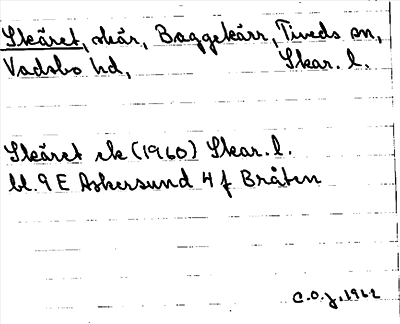 Skäret, skär, Baggekärr, Tiveds sn,
Vadsbo hd, Skar. l.
Skäret ek (1960) Skar. l.
bl. 9 E Askersund 4 f Bråten
C.O.J. 1962